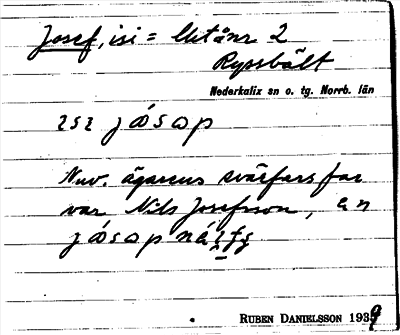 Josef, isi = Utånr 2
Ryssbält
Nederkalix sn o. tg. Norrb. län
Nuv. ägarens svärfars far
var Nils Josefsson, en
RUBEN DANIELSSON 1939